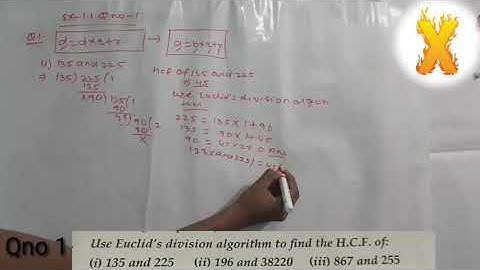 Ex-1.1 Qno-1
Q1. a=dxq+r → a=bq+r
(i) 135 and 225
⇒ 135) 225 (1
135
x90) 135 (1
90
45) 90 (2
90
x
HCF of 135 and 225
is 45
Use Euclid's division algori
225 = 135 x 1 + 90
135 = 90 x 1 + 45
90 = 45 x 2 + 0
X
Qno 1
Use Euclid's division algorithm to find the H.C.F. of:
(i) 135 and 225 (ii) 196 and 38220 (iii) 867 and 255